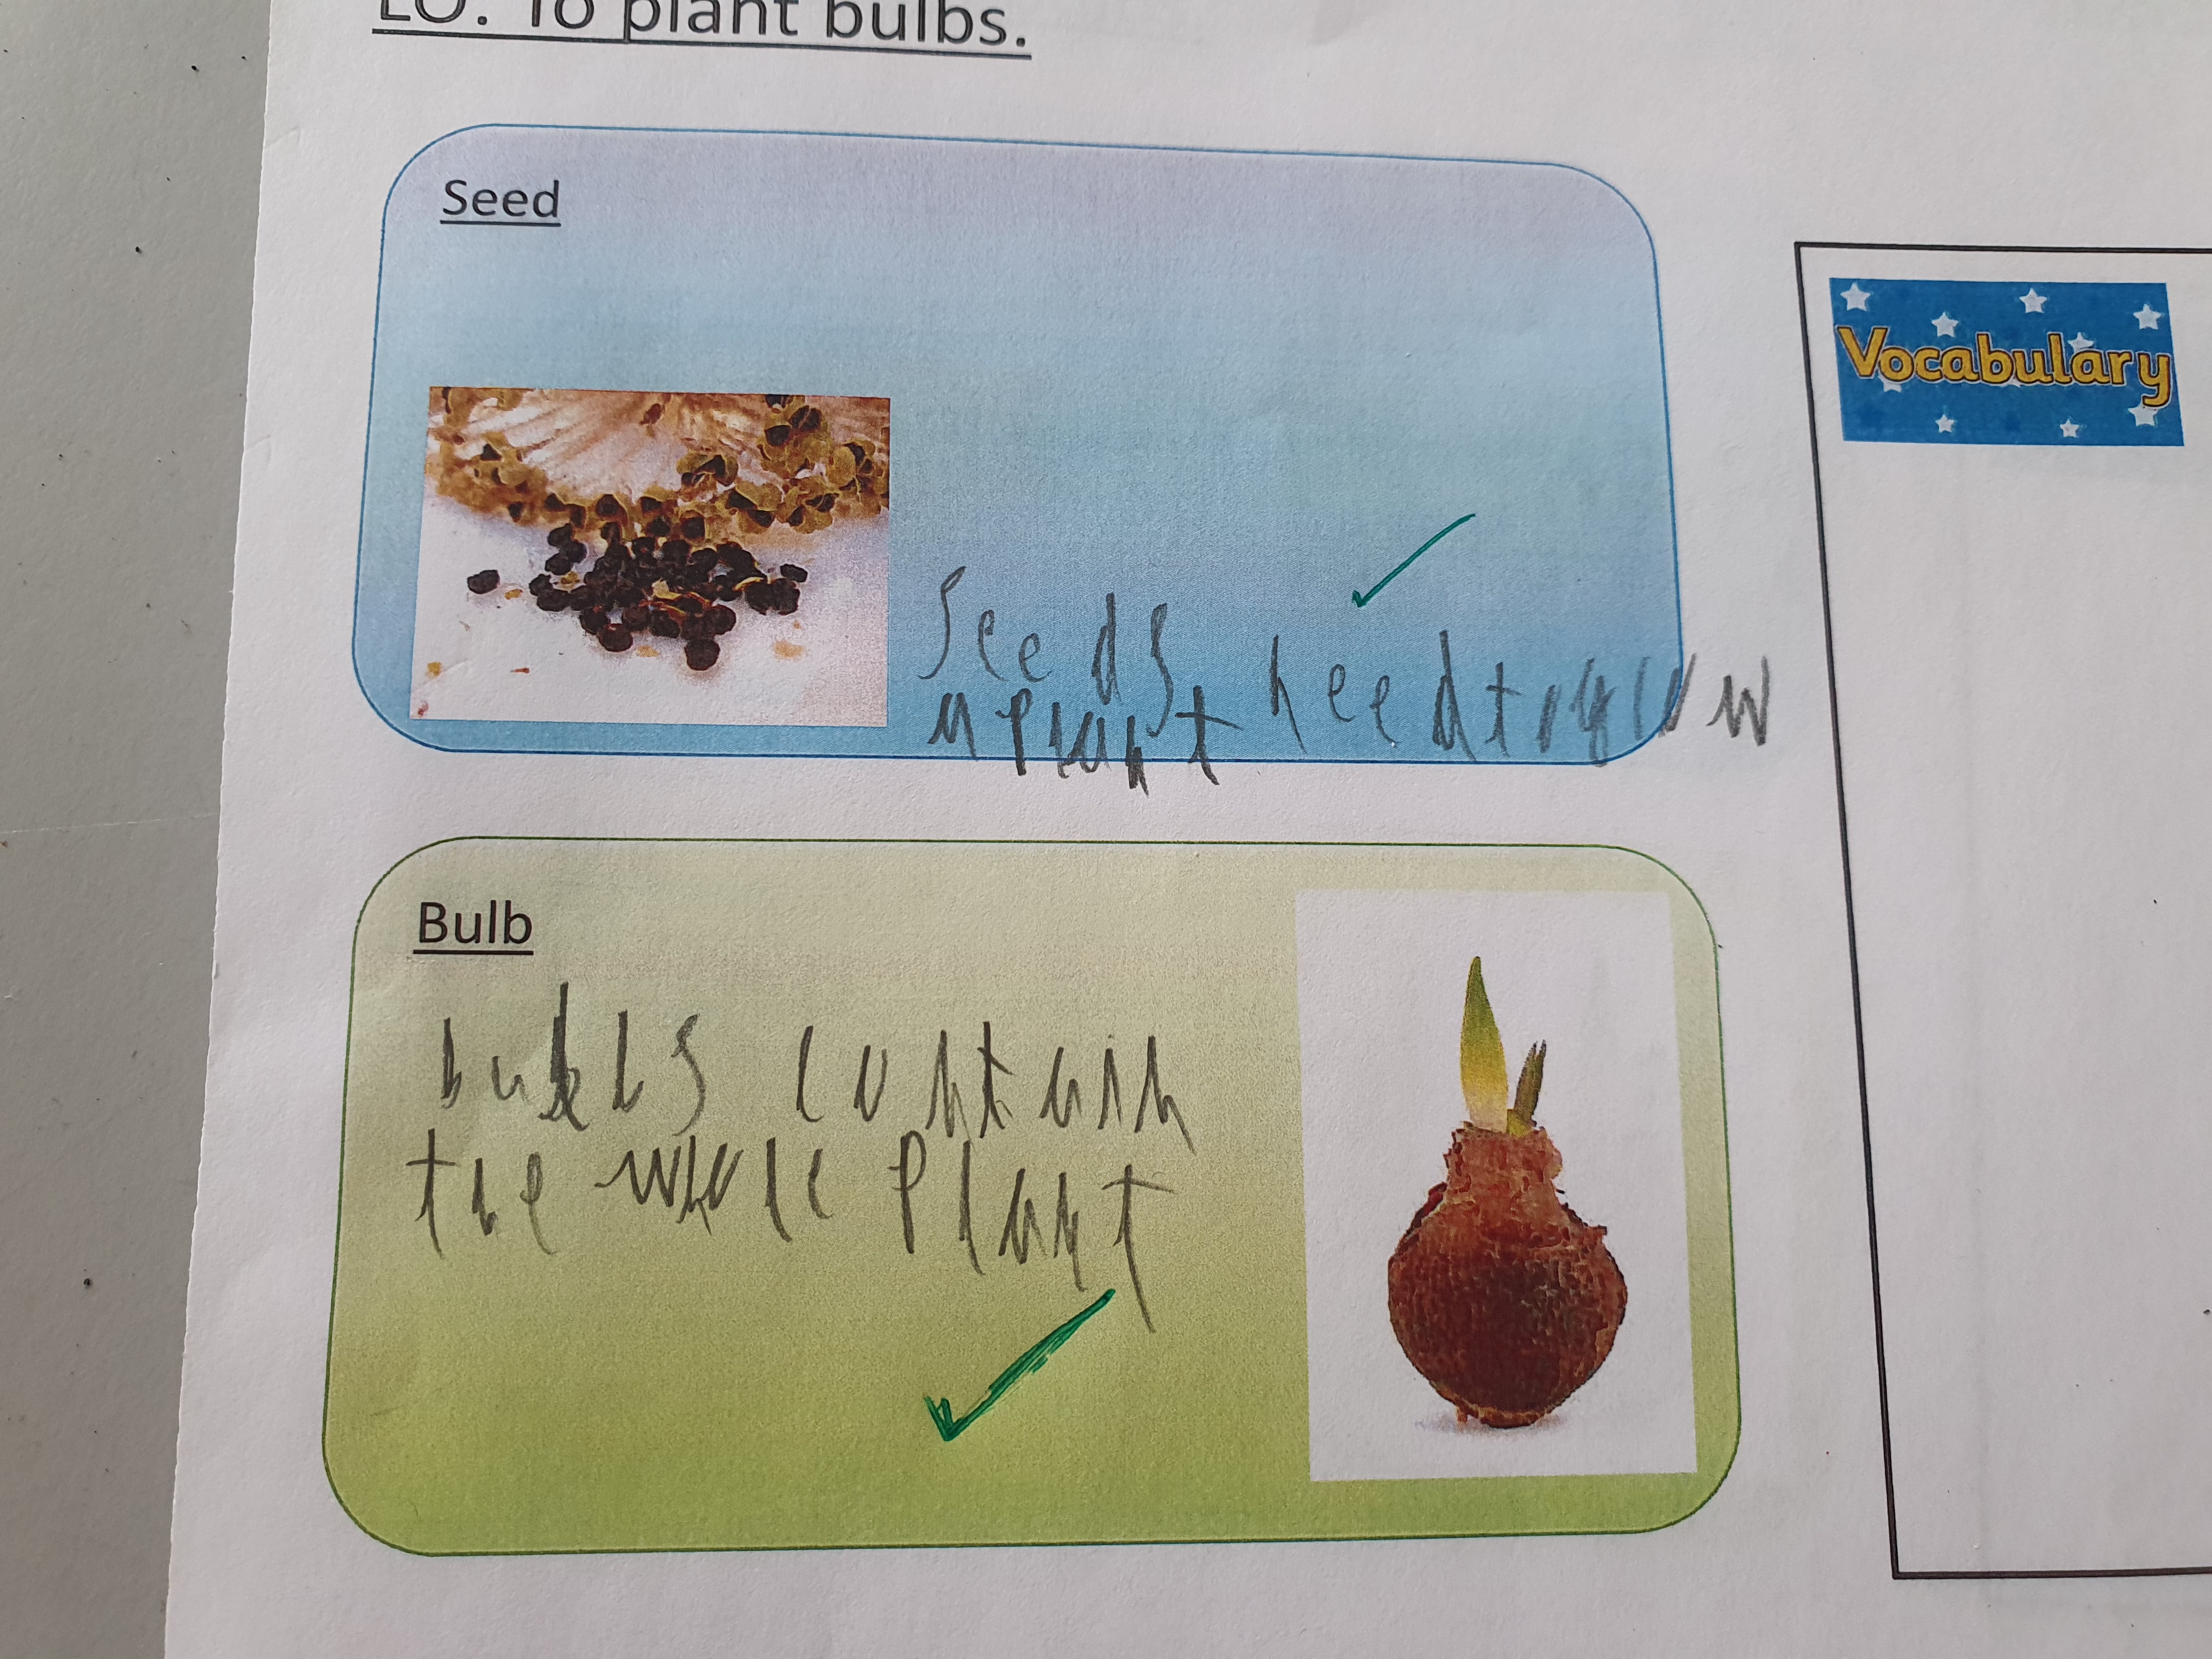 LO: To plant bulbs.
Seed
Vocabulary
Seeds need to grow
a plant
Bulb
bulbs contain
the whole plant